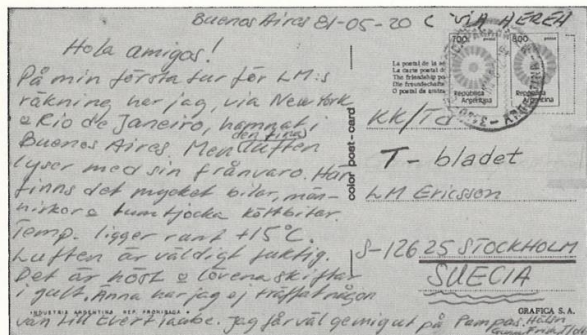 Buenos Aires 81-05-20 VIA AEREA
Hola amigos!
På min första tur för LM:s
räkning har jag, via New York
& Rio de Janeiro, hamnat i
Buenos Aires. Men den fina luften
lyser med sin frånvaro. Här
finns det mycket bilar, män-
niskor & tumtjocka köttbitar.
Temp. ligger runt +15°C.
Luften är väldigt fuktig.
Det är höst & löven skiftar
i gult. Änna har jag ej träffat någon
vän till Evert Taube. Jag får väl ge mig ut på Pampas.
Hälsn
INDUSTRIA ARGENTINA REP. PROHIBIDA
color post-card
La postal de la
La carte postale de
The friendship po
Die freundschaft
O postal da amiza
700
800
República
Argentina
República
Argentina
KK/Td
T-bladet
LM Ericsson
S-126 25 STOCKHOLM
SUECIA
GRAFICA S.A.